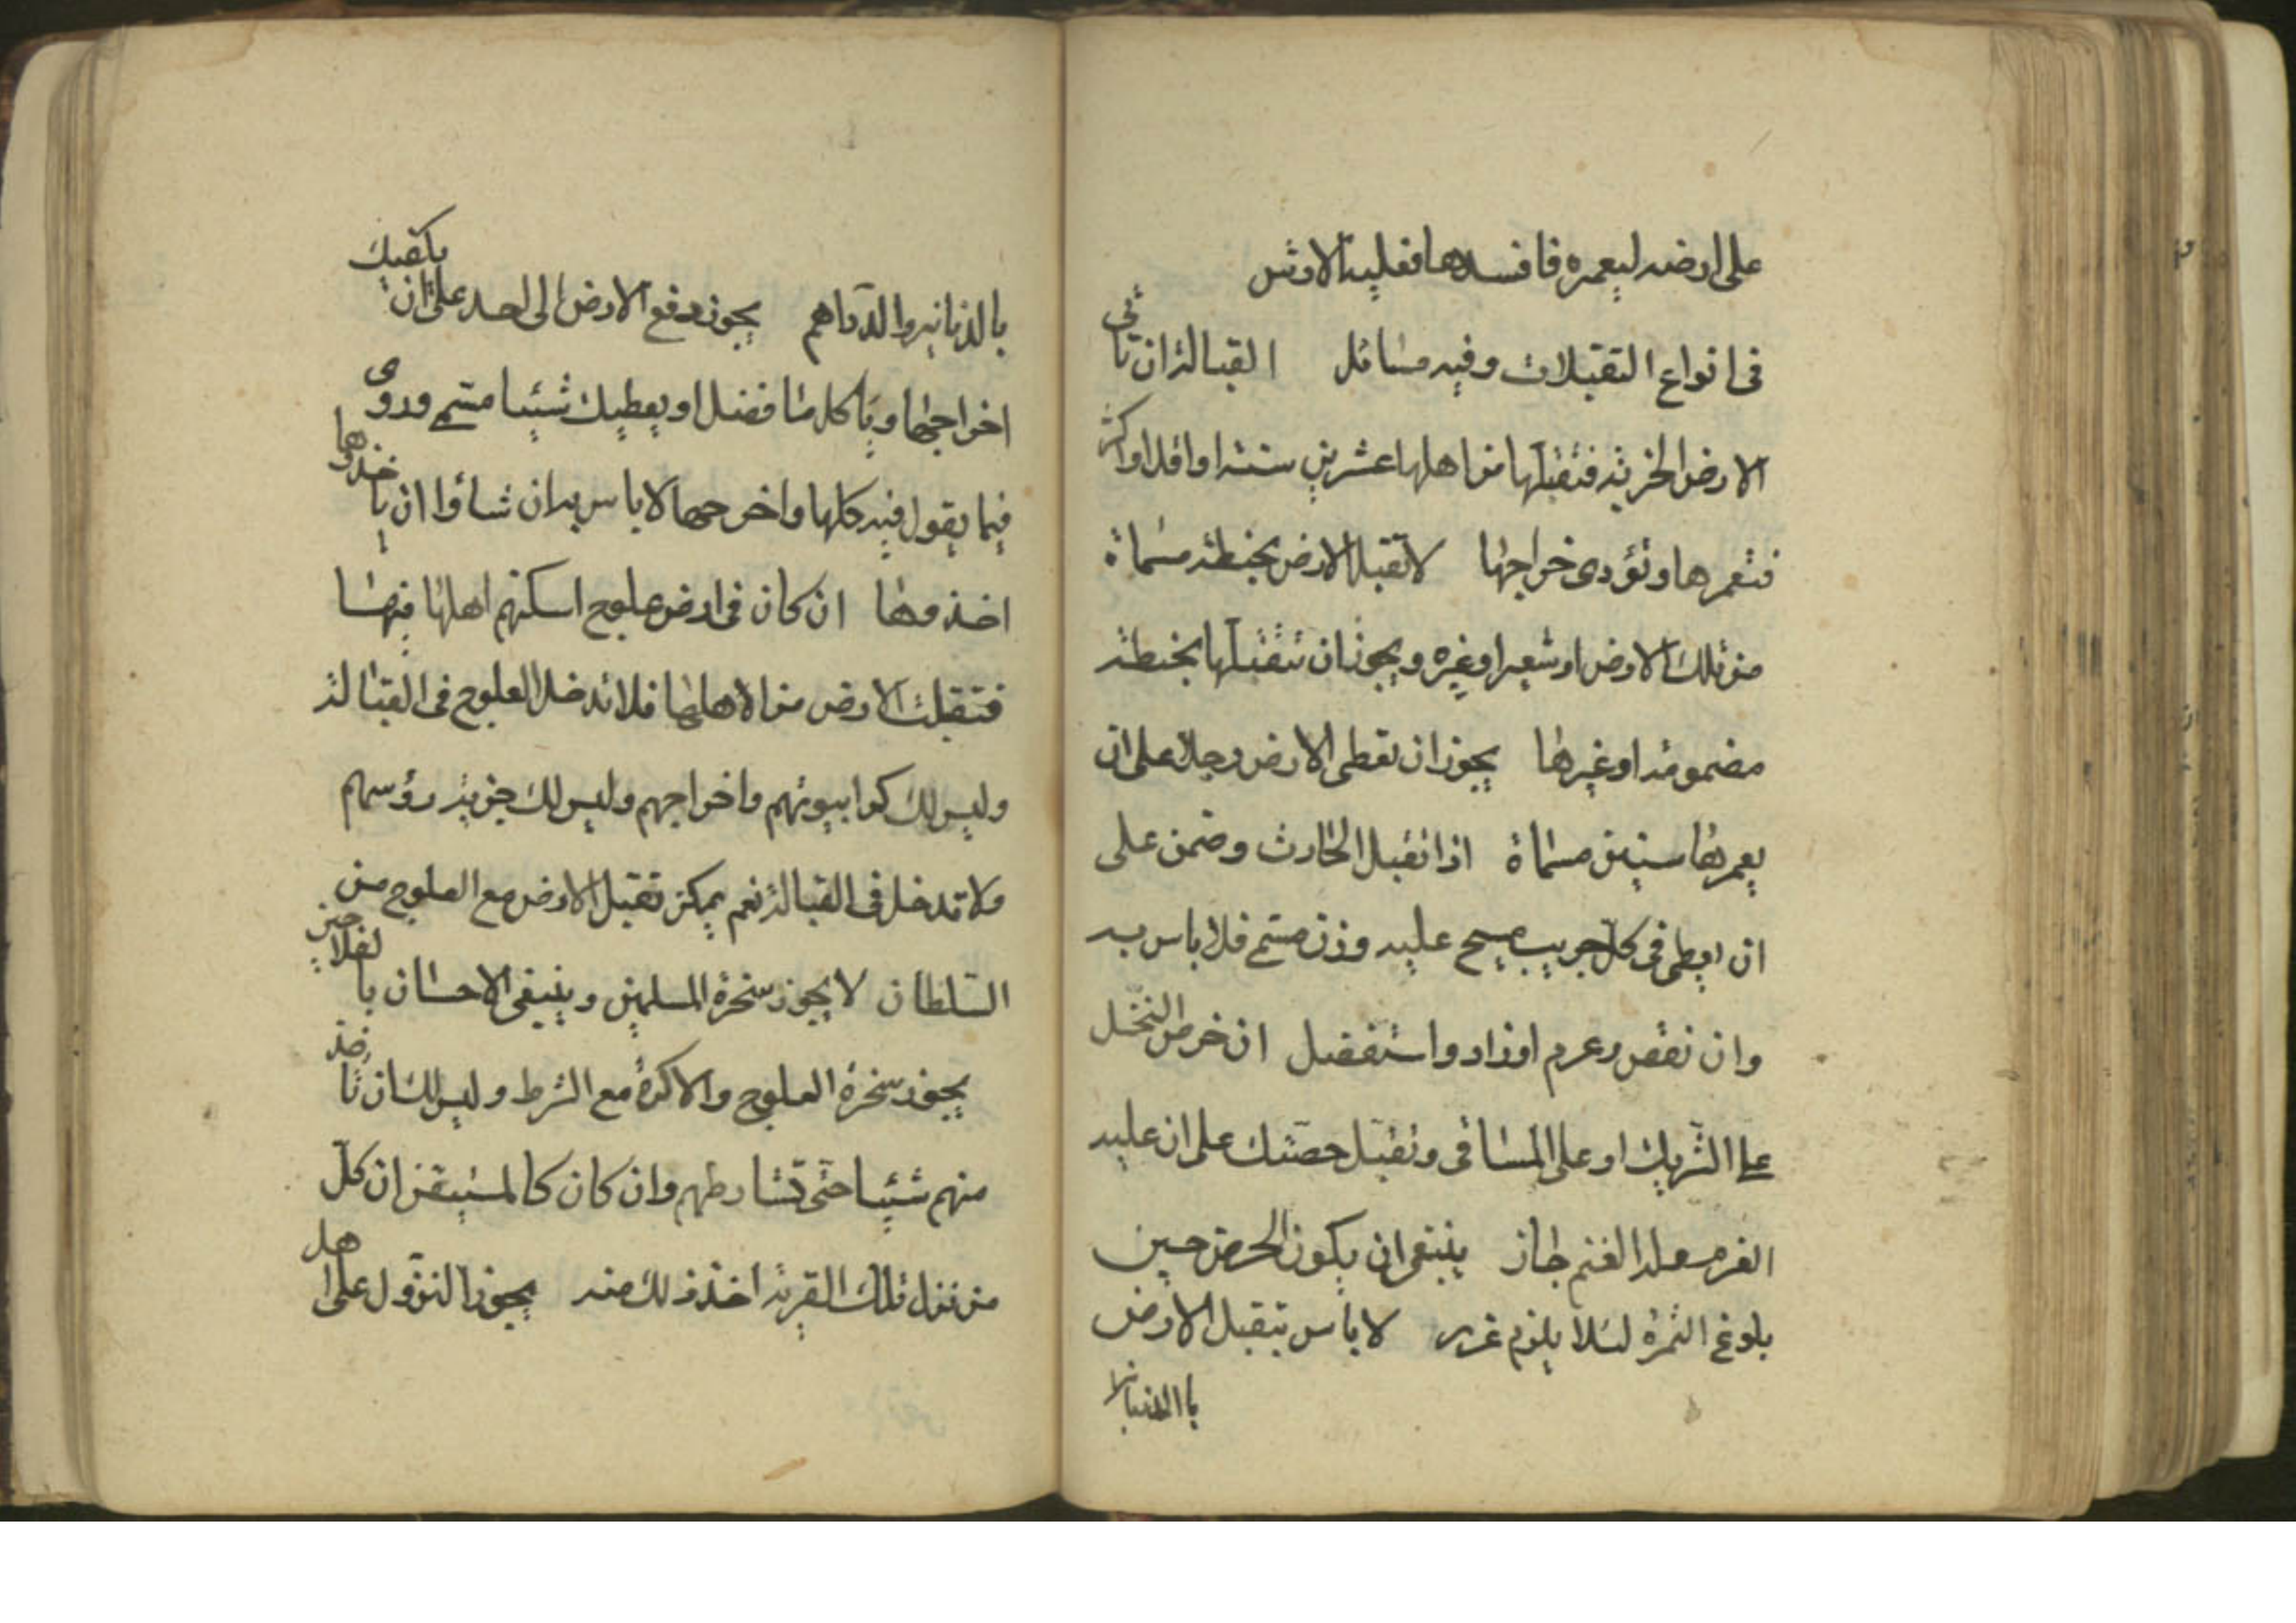 على ارضه ليعمره فافسدها فعليه الارش
فى انواع التقبلات وفيه مسائل القبالة ان تاتى
الارض الخربة فتقبلها من اهلها عشرين سنة او اقل او اكثر
فتعمرها وتؤدى خراجها لا تقبل الارض بحنطة مسماة
من تلك الارض او شعير او غيره ويجوز ان تتقبلها بحنطة
مضمونة او غيرها يجوز ان تعطى الارض رجلا على ان
يعمرها سنين مسماة اذا تقبل الحارث وضمن على
ان يعطى فى كل جريب مسح عليه وزن مسمى فلا باس به
وان نقص وعرم او زاد واستفضل ان خرص النخل
على الشريك او على المساقى وتقبل حصتك على ان عليه
الغرم وله الغنم جاز ينبغى ان يكون الخرص حين
بلوغ الثمرة لئلا يلزم غرر لا باس بتقبل الارض
بالدنانير والدراهم يجوز دفع الارض الى احد على ان يكفيك
اخراجها وياكل ما فضل او يعطيك شيئا مسمى وروى
فيما يقول فيه كلها واخرجها لا باس به ان شاؤا ان ياخذوها
اخذوها ان كان فى ارض علوج اسكنهم اهلها فيها
فتقبلت الارض من الاهلها فلا تدخل العلوج فى القبالة
وليس لك كرا بيوتهم واخراجهم وليس لك جزية رؤسهم
ولا تدخل فى القبالة نعم يمكن تقبل الارض مع العلوج من
السلطان لا يجوز سخرة المسلمين وينبغى الاحسان بالفلاحين
يجوز سخرة العلوج والاكرة مع الشرط وليس لك ان تاخذ
منهم شيئا حتى تشارطهم وان كان كالمستيقن ان كل
من نزل تلك القرية اخذ ذلك منه يجوز النزول على اهل